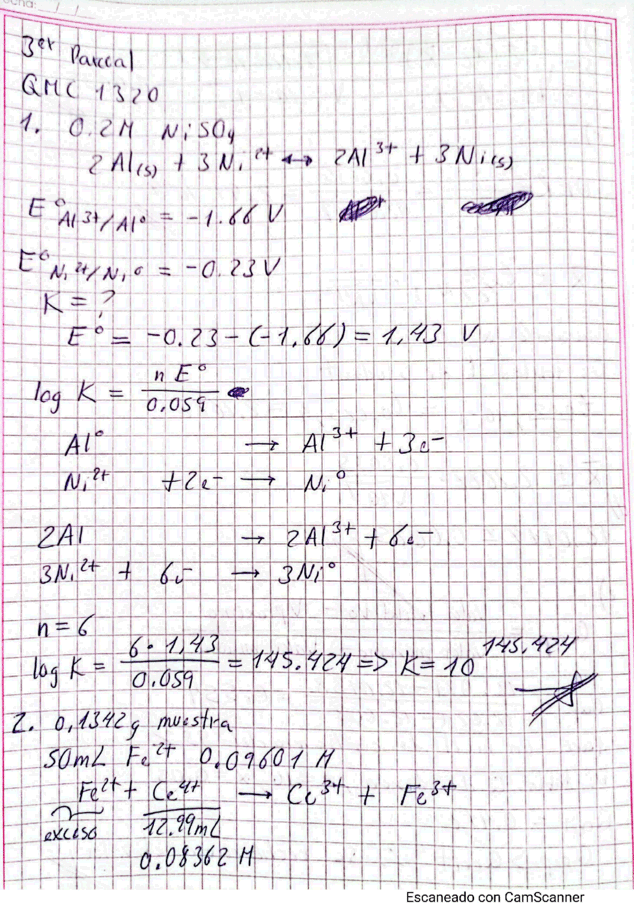 3er Parcial
QMC 1320
1. 0.2M NiSO4
2Al(s) + 3Ni2+ ↔ 2Al3+ + 3Ni(s)
E°Al3+/Al° = -1.66 V
E°Ni2+/Ni° = -0.23V
K = ?
E° = -0.23 - (-1.66) = 1,43 V
log K = n E° / 0.059
Al° → Al3+ + 3e-
Ni2+ + 2e- → Ni°
2Al → 2Al3+ + 6e-
3Ni2+ + 6e- → 3Ni°
n = 6
log K = 6 · 1,43 / 0.059 = 145.424 => K = 10^145.424
2. 0,1342g muestra
50mL Fe2+ 0.09601 M
Fe2+ + Ce4+ → Ce3+ + Fe3+
exceso 12.99mL
0.08362 M
Escaneado con CamScanner